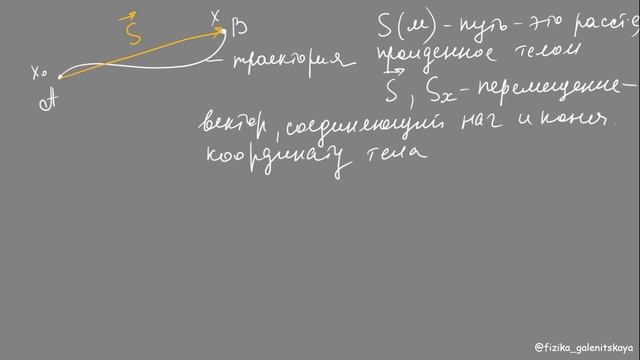 S⃗
x B
x₀
A
траектория
S(м) – путь – это расст-е,
пройденное телом
S⃗, Sx – перемещение –
вектор, соединяющий нач и конеч.
координату тела
@fizika_galenitskaya